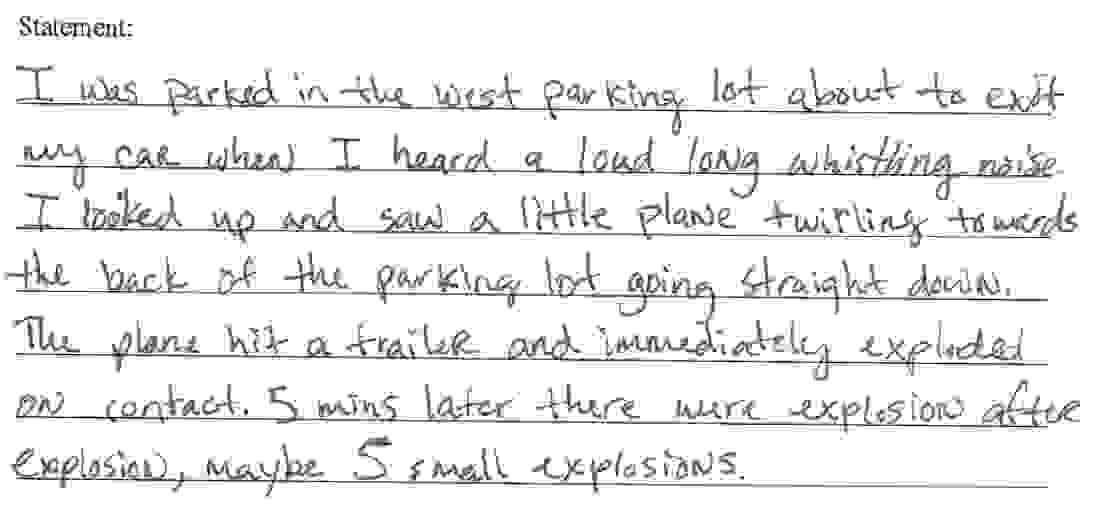 Statement:
I was parked in the west parking lot about to exit
my car when I heard a loud long whistling noise.
I looked up and saw a little plane twirling towards
the back of the parking lot going straight down.
The plane hit a trailer and immediately exploded
on contact. 5 mins later there were explosion after
explosion, maybe 5 small explosions.